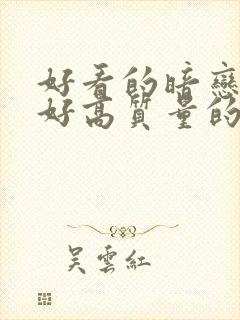 好看的暗戀
好高質量的
吳雲紅